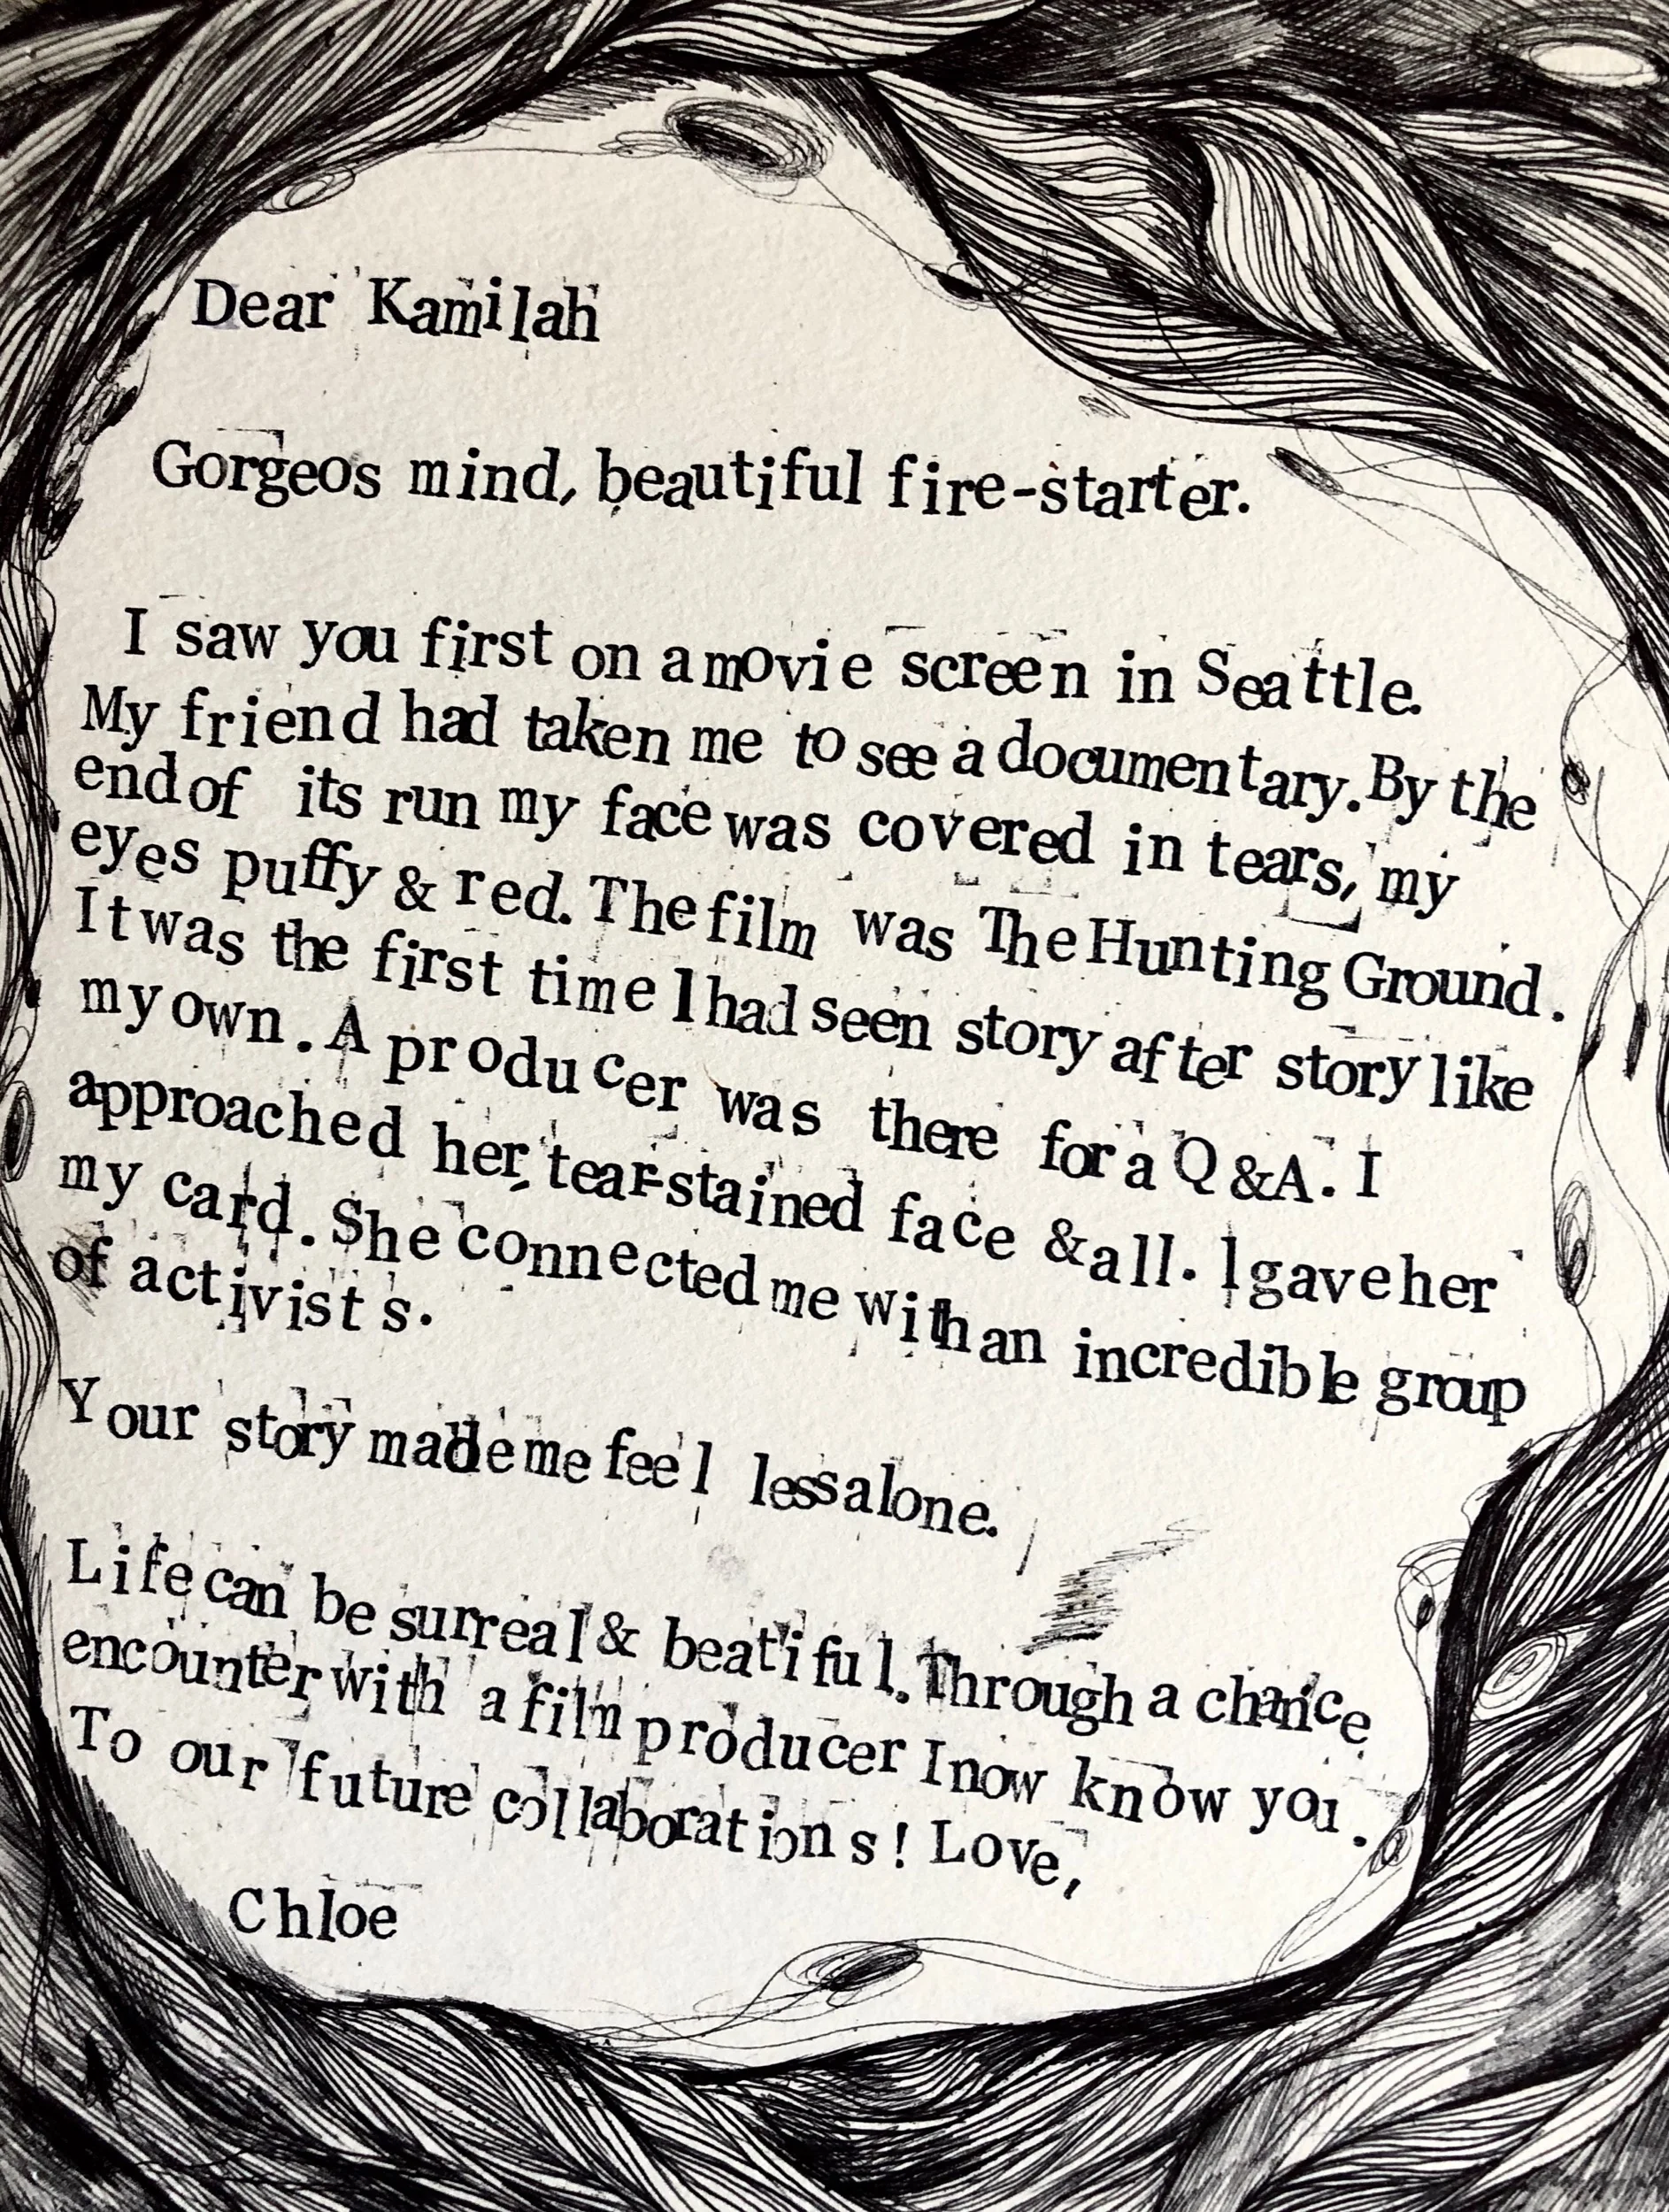 Dear Kamilah
Gorgeos mind, beautiful fire-starter.
I saw you first on a movie screen in Seattle.
My friend had taken me to see a documentary. By the
end of its run my face was covered in tears, my
eyes puffy & red. The film was The Hunting Ground.
It was the first time I had seen story after story like
my own. A producer was there for a Q &A. I
approached her, tear-stained face & all. I gave her
my card. She connected me with an incredible group
of activists.
Your story made me feel less alone.
Life can be surreal & beatiful. Through a chance
encounter with a film producer I now know you.
To our future collaborations! Love,
Chloe